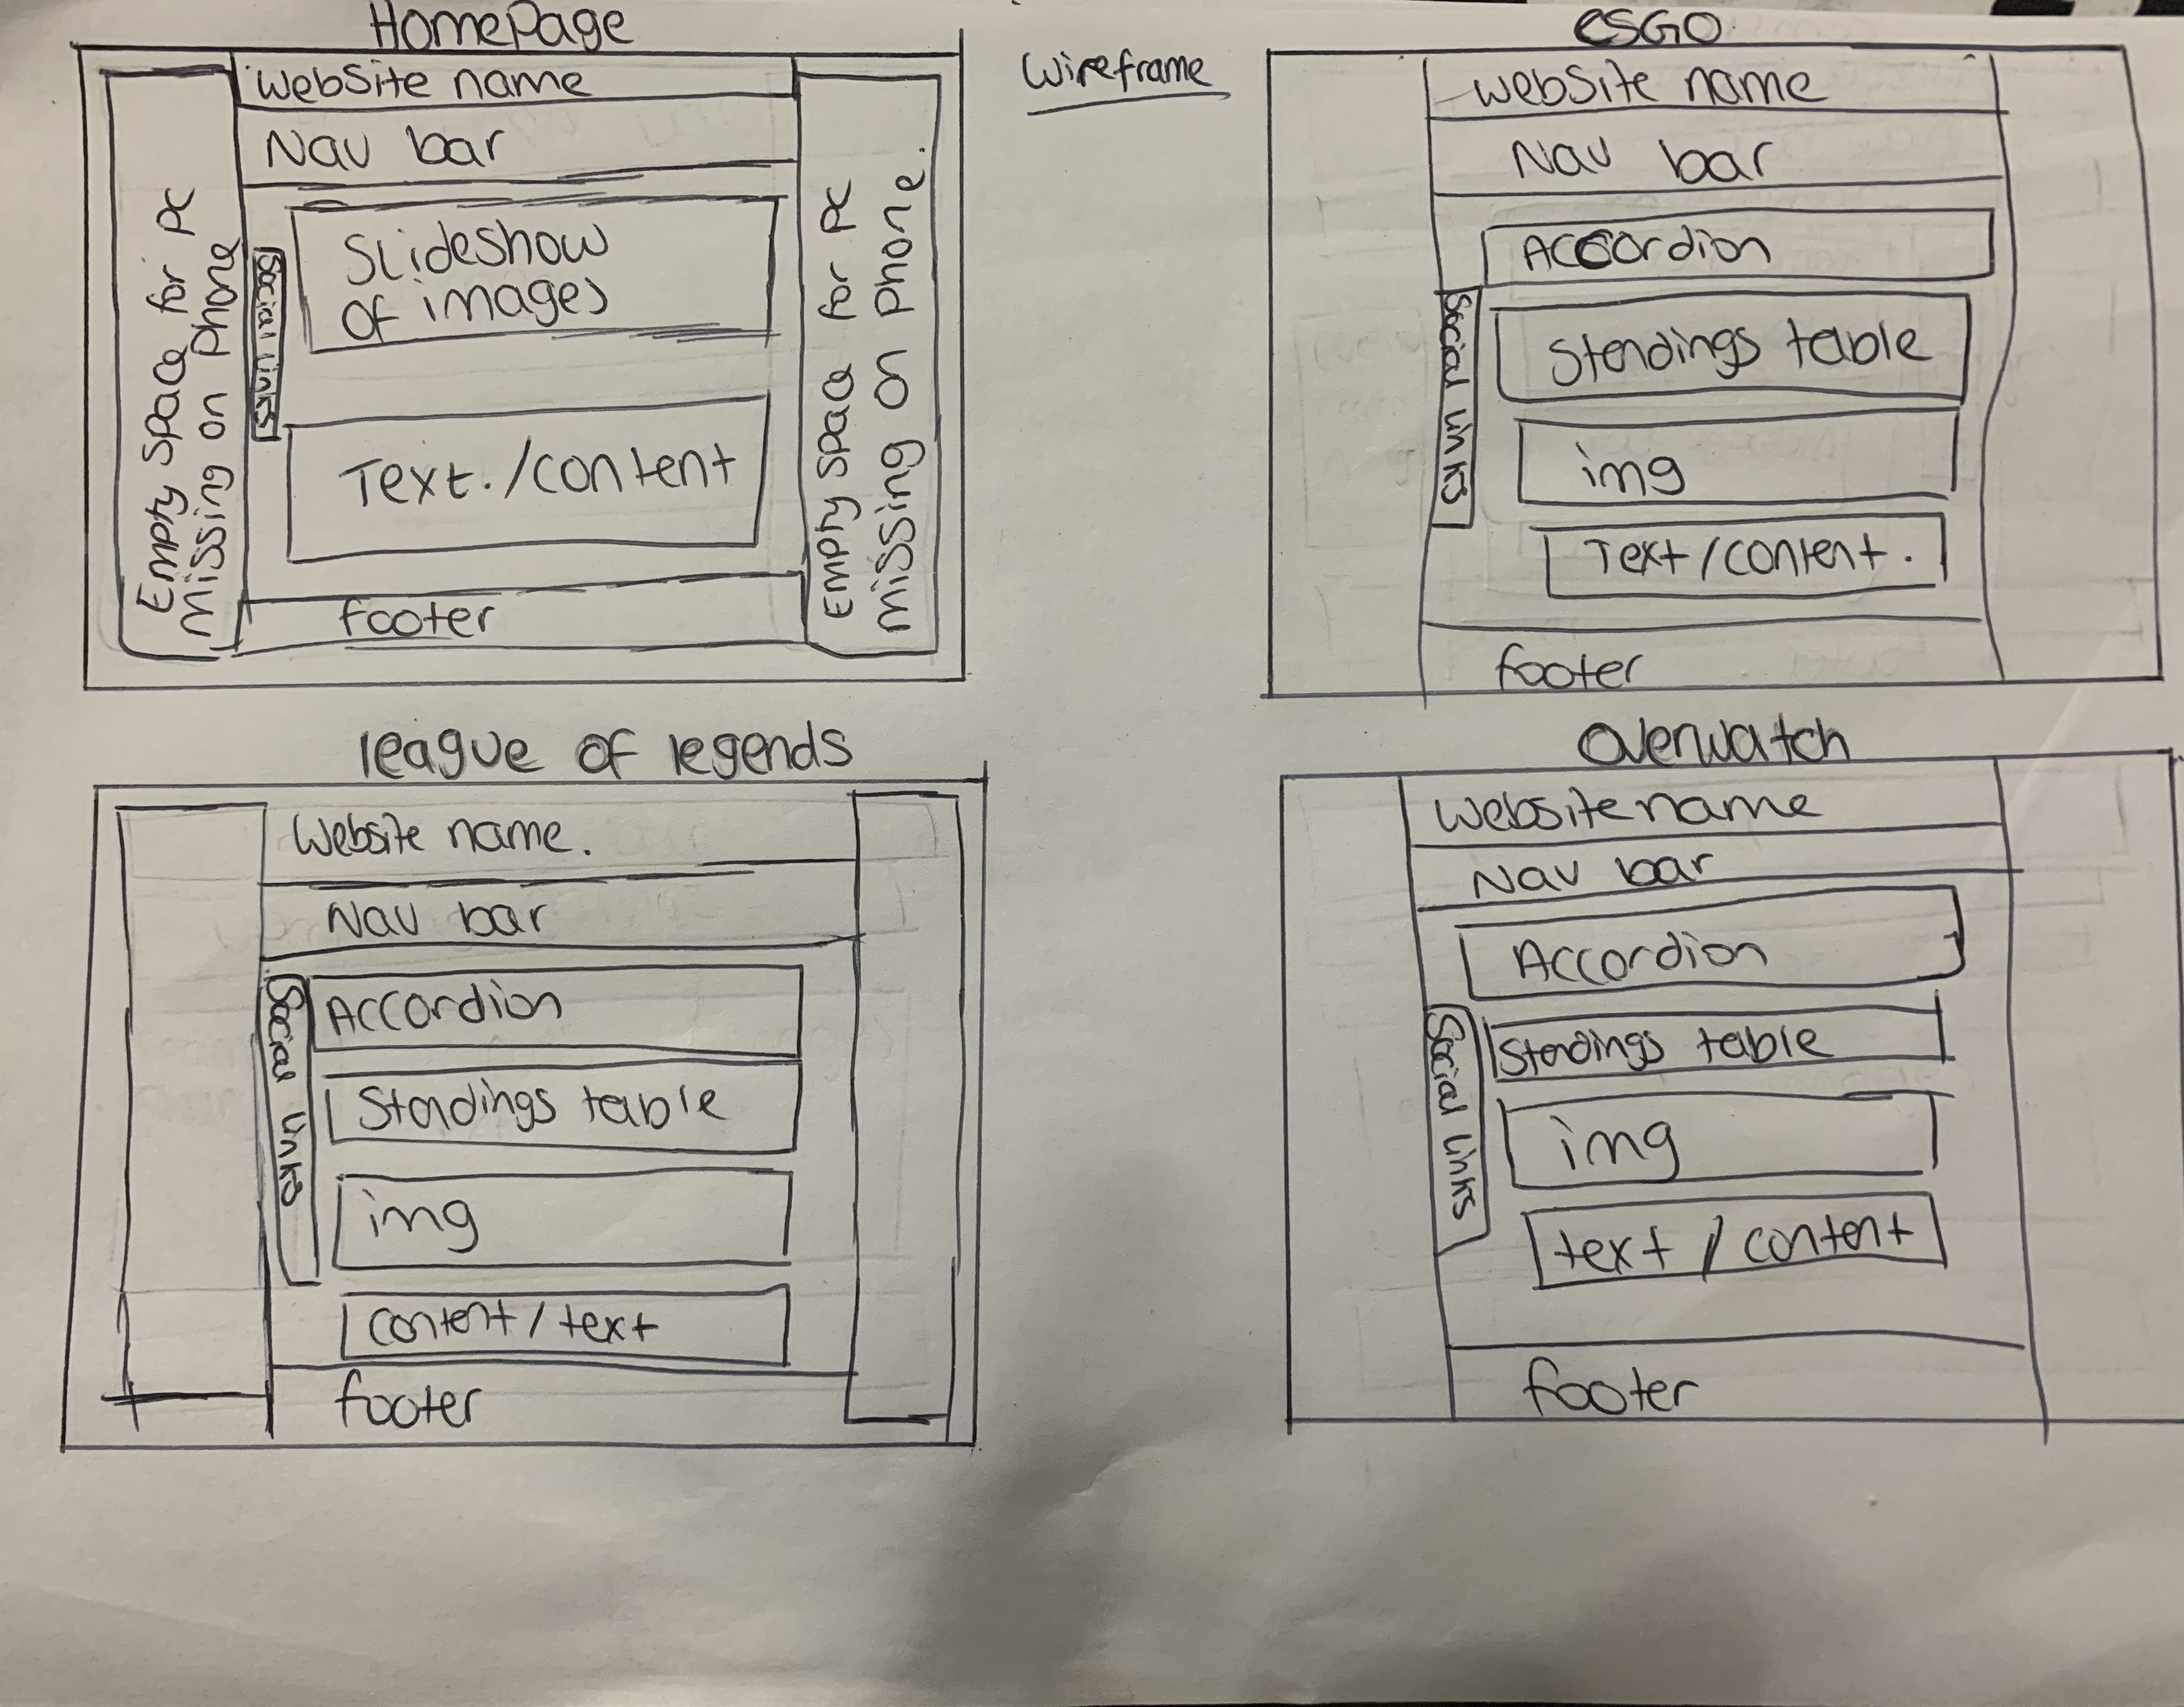 HomePage
Website name
Nav bar
Empty space for PC
missing on phone
Social links
Slideshow
of images
Text./content
Empty space for PC
missing on phone.
footer
Wireframe
CSGO
website name
Nav bar
Accordion
Social links
Standings table
img
Text/content.
footer
league of legends
Website name.
Nav bar
Social links
Accordion
Standings table
img
content/text
footer
Overwatch
Website name
Nav bar
Accordion
Social links
Standings table
img
text/content
footer